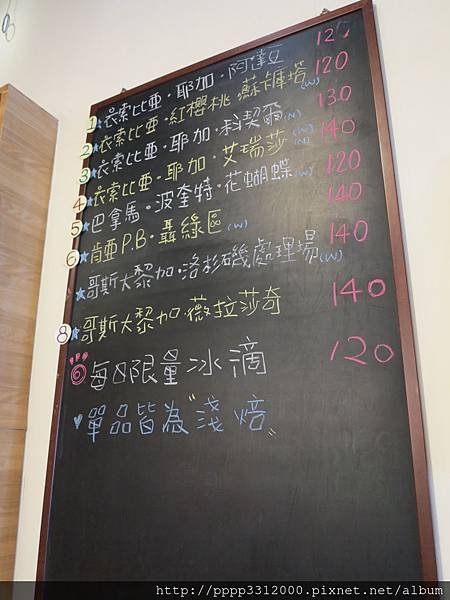 1★衣索比亞・耶加・阿達 120
2★衣索比亞・紅櫻桃 蘇卡塔(W) 120
3★衣索比亞・耶加・科契爾(N) 130
4★衣索比亞・耶加・艾瑞莎(W)(N) 140
5★巴拿馬・波奎特・花蝴蝶(W) 120
6★肯亞P.B・聶綠區(W) 140
★哥斯大黎加・洛杉磯處理場(W) 140
8★哥斯大黎加・薇拉莎奇 140
每日限量冰滴 120
♥單品皆為"淺焙"
http://pppp3312000.pixnet.net/album